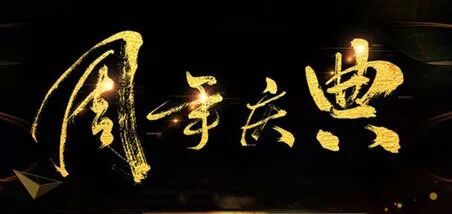 周年庆典